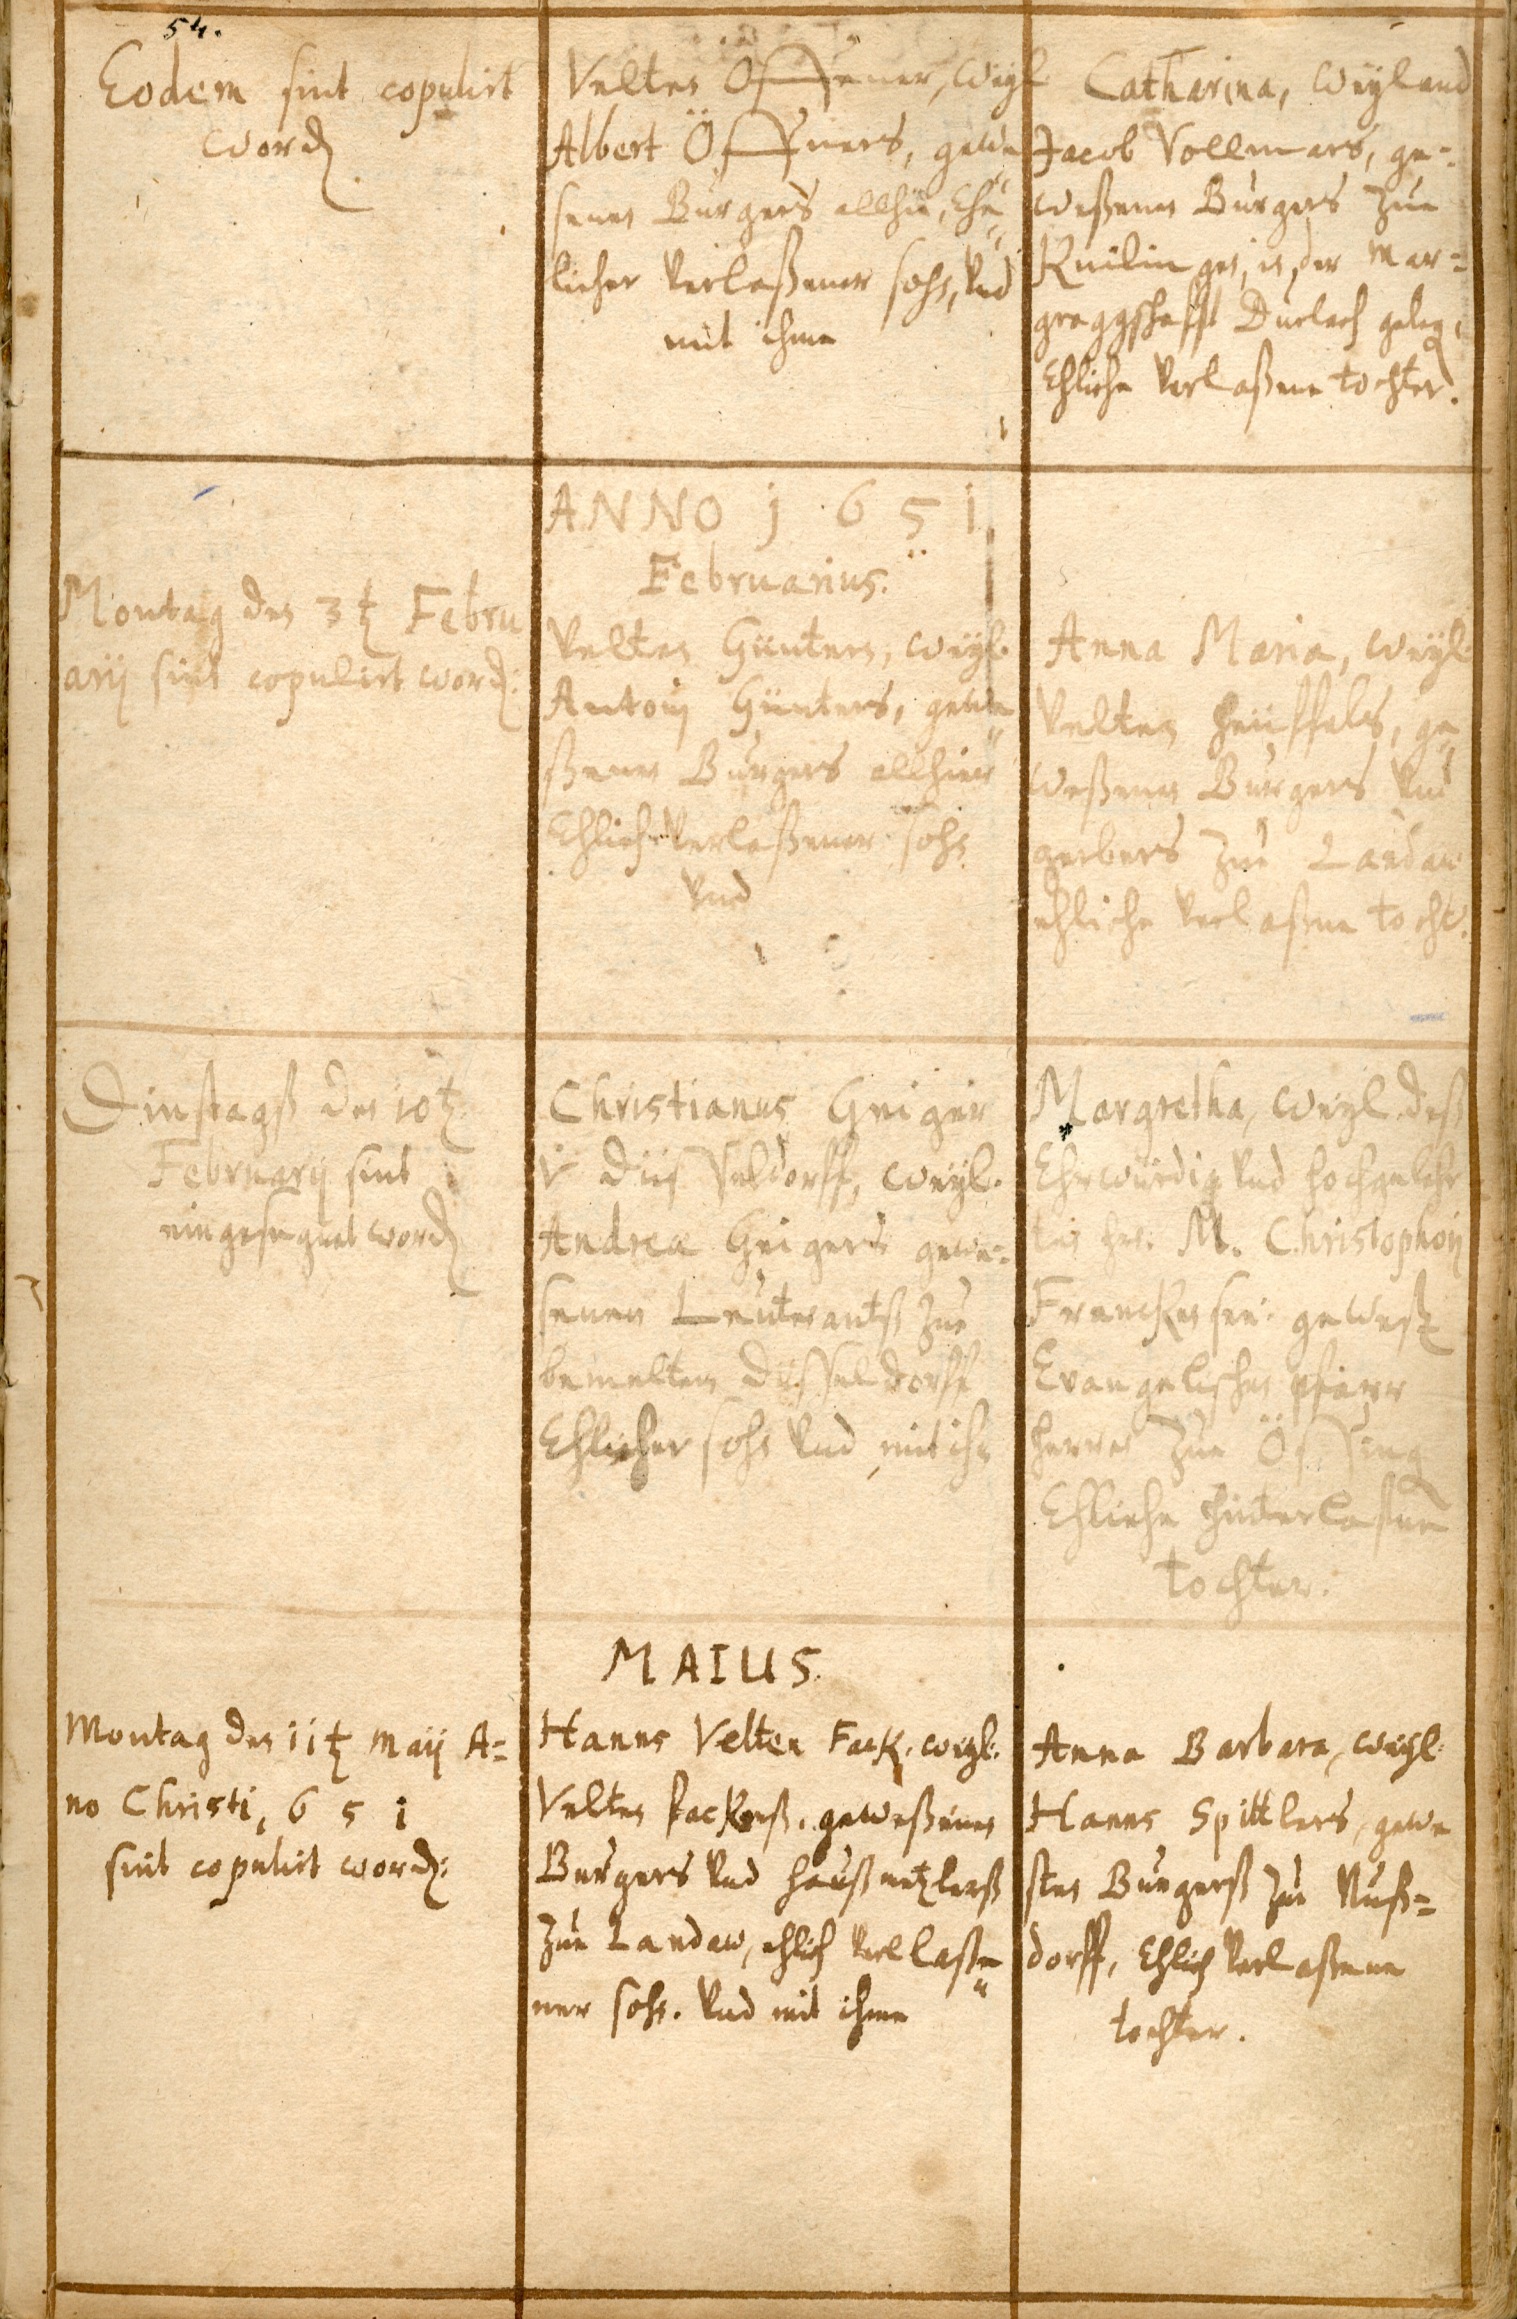 54.
Eodem sint copulirt
word
Velten Öffener, weyl
Albert Öffners, gewe
senen Burgers allhie, Ehe
licher verlaßener sohn, vnd
mit ihme
Catharina, weyland
Jacob Vollmars, ge=
weßenen Burgers zue
Knilingen, in der Mar=
graggschafft Durlach geleg,
Ehliche verlaßene tochter.
ANNO 1651
Februarius.
Montag den 3t Febru
arij sint copulirt word:
Velten Günters, weyl.
Antonij Günters, gewe
ßenen Burgers allhier
Ehlich verlaßener sohn
vnd
Anna Maria, weyl
Velten heüffels, ge
weßenen Burgers vnd
gerbers zue Landaw
ehliche verlaßene tocht.
Dinstagß den 10t
Februarij sint
eingesegnet word
Christianus Geiger
v Düsseldorff, weyl.
Andrea Geigers gewe=
senen Leutenantß zue
bemelten Düsseldorff
Ehlicher sohn vnd mit ihm
Margretha, weyl. deß
Ehrwürdig vnd hochgelehr
ten hr. M. Christophorij
Francken see: geweßt
Evangelischen pfarr
herren zue
Ehliche hinterlaßene
tochter.
MAIUS.
Montag den 11t Maij A=
no Christi, 651
sint copulirt word:
Hanns Velten Fack, weyl:
Velten fackenß, geweßenen
Burgers vnd haußmetzlerß
zue Landaw, ehlich verlaße
ner sohn. vnd mit ihme
Anna Barbara, weyl:
Hanns Spittlers, gewe
sten Burgerß zue Nuß=
dorff, Ehlich verlaßene
tochter.